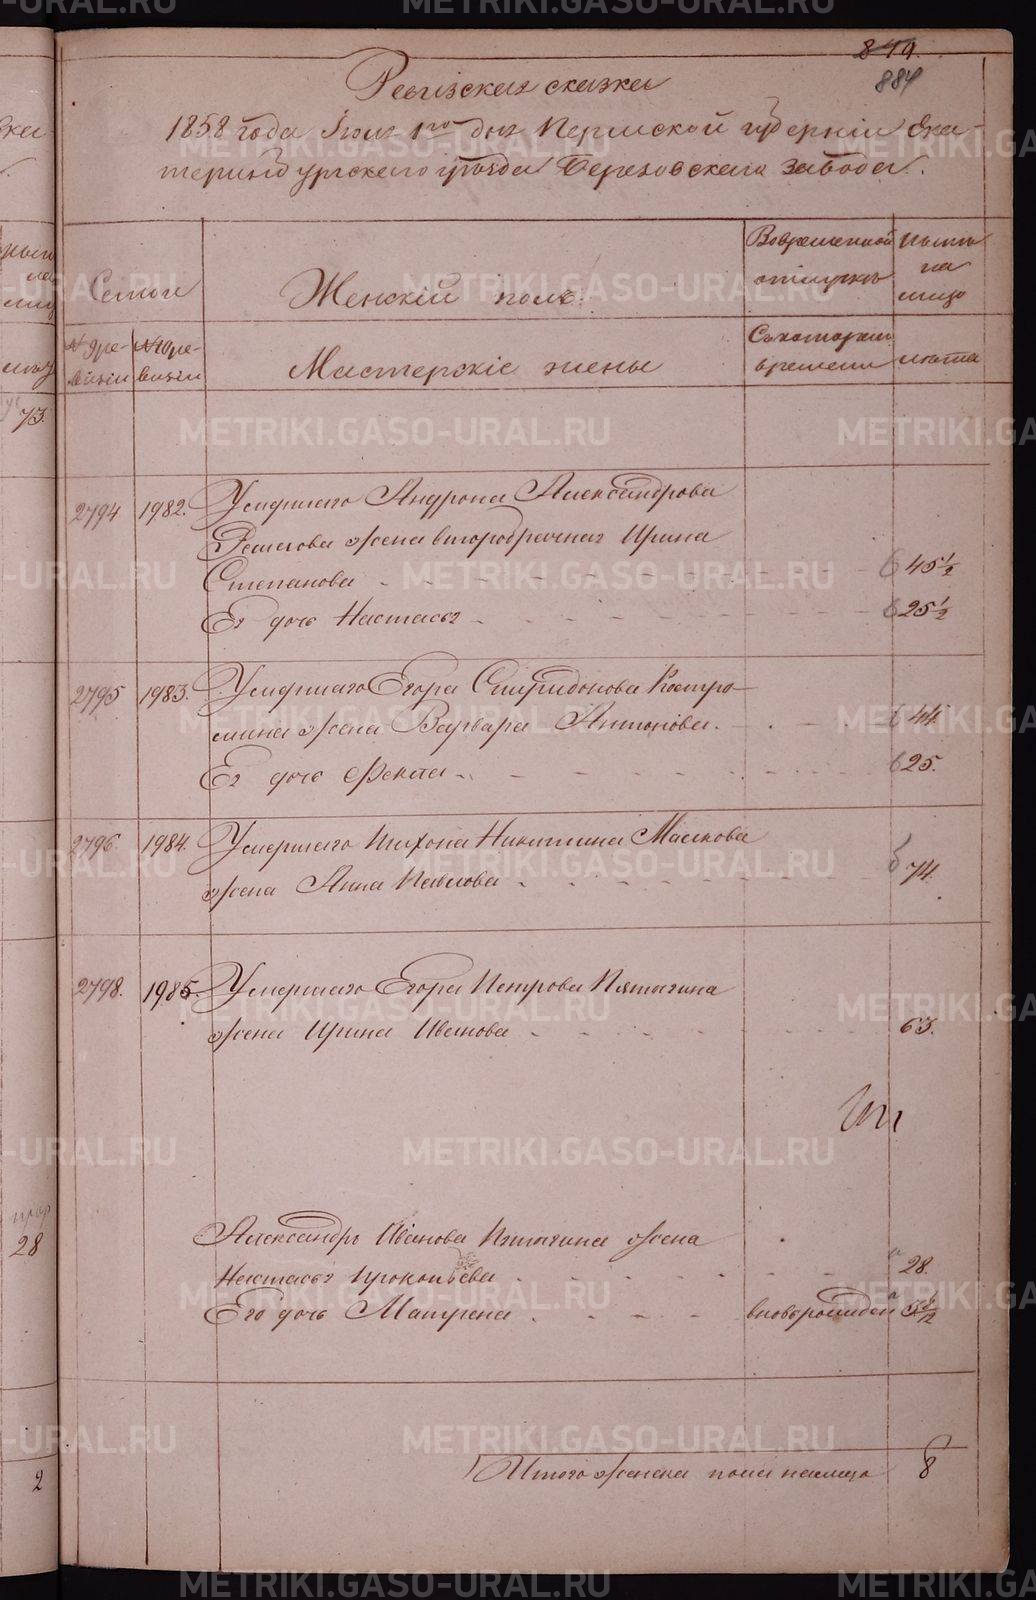 849.
884
Ревизская сказка
1858 года Июля 1го дня Пермской губерніи Ека-
теринбургскаго уезда Березовскаго завода.
Семьи
Женскій полъ.
Во временной
отлучкѣ
Ныне
на
лицо
№ 9 ре-
визіи
№ 10 ре-
визіи
Мастерскіе жены
Съ котораго
времени
лета
73.
2794
1982.
Умершаго Андрона Александрова
жена второбрачная Ирина
Степанова
45 1/2
Ея дочь Настасья
25 1/2
2795
1983.
Умершаго Егора Спиридонова Костро-
мина жена Варвара Антонова.
44.
Ея дочь Фекла
25.
2796
1984.
Умершаго Тихона Никитина Маскова
жена Анна Павлова
74.
2798.
1985.
Умершаго Егора Петрова Пятыгина
жена Ирина Иванова
63.
Александръ Иванова Пятыгина жена
Настасья Прокопьева
28.
Его дочь Матрена
вновьрожден
28
Итого женска пола налицо
8
2
METRIKI.GASO-URAL.RU